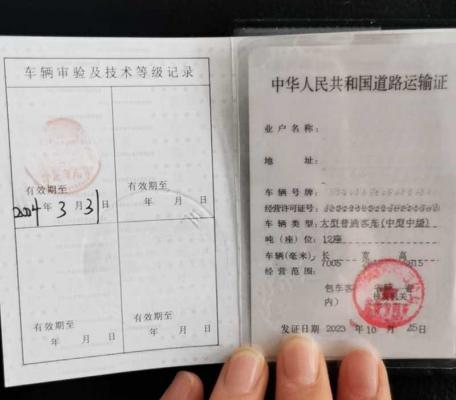 车辆审验及技术等级记录
有效期至
2024年 3月 31日
有效期至
年 月 日
有效期至
年 月 日
有效期至
年 月 日
中华人民共和国道路运输证
业户名称
地 址
车辆号牌
经营许可证号
车辆类型 大型普通客车(中型中级)
吨(座)位 12座
车辆(毫米) 长 宽 高
7005
经营范围
包车客
内)
核发机关
发证日期 2023 年 10 月 25日